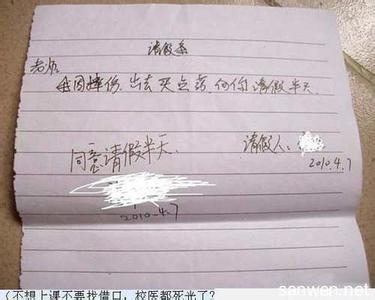 请假条
老师
我因摔伤，出去买点药，向你请假半天.
请假人：
2010.4.7
同意请假半天.
2010.4.7
（不想上课不要找借口，校医都死光了？
sanwen.net